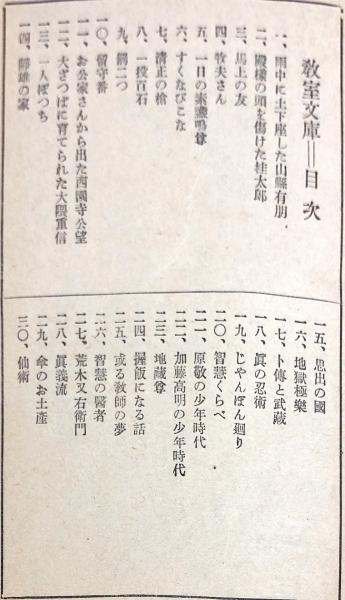 教室文庫＝目次
一、雨中に土下座した山縣有朋
二、殿様の頭を傷けた桂太郎
三、馬上の友
四、牧夫さん
五、一日の素盞嗚尊
六、すくなびこな
七、清正の槍
八、一投百石
九、鶴二つ
一〇、留守番
一一、お公家さんから出た西園寺公望
一二、大ざつぱに育てられた大隈重信
一三、一人ぼつち
一四、勝雄の家
一五、思出の國
一六、地獄極樂
一七、卜傳と武藏
一八、眞の忍術
一九、じやんぽん廻り
二〇、智慧くらべ
二一、原敬の少年時代
二二、加藤高明の少年時代
二三、地藏尊
二四、握飯になる話
二五、或る教師の夢
二六、智慧の醫者
二七、荒木又右衛門
二八、眞義流
二九、傘のお土産
三〇、仙術